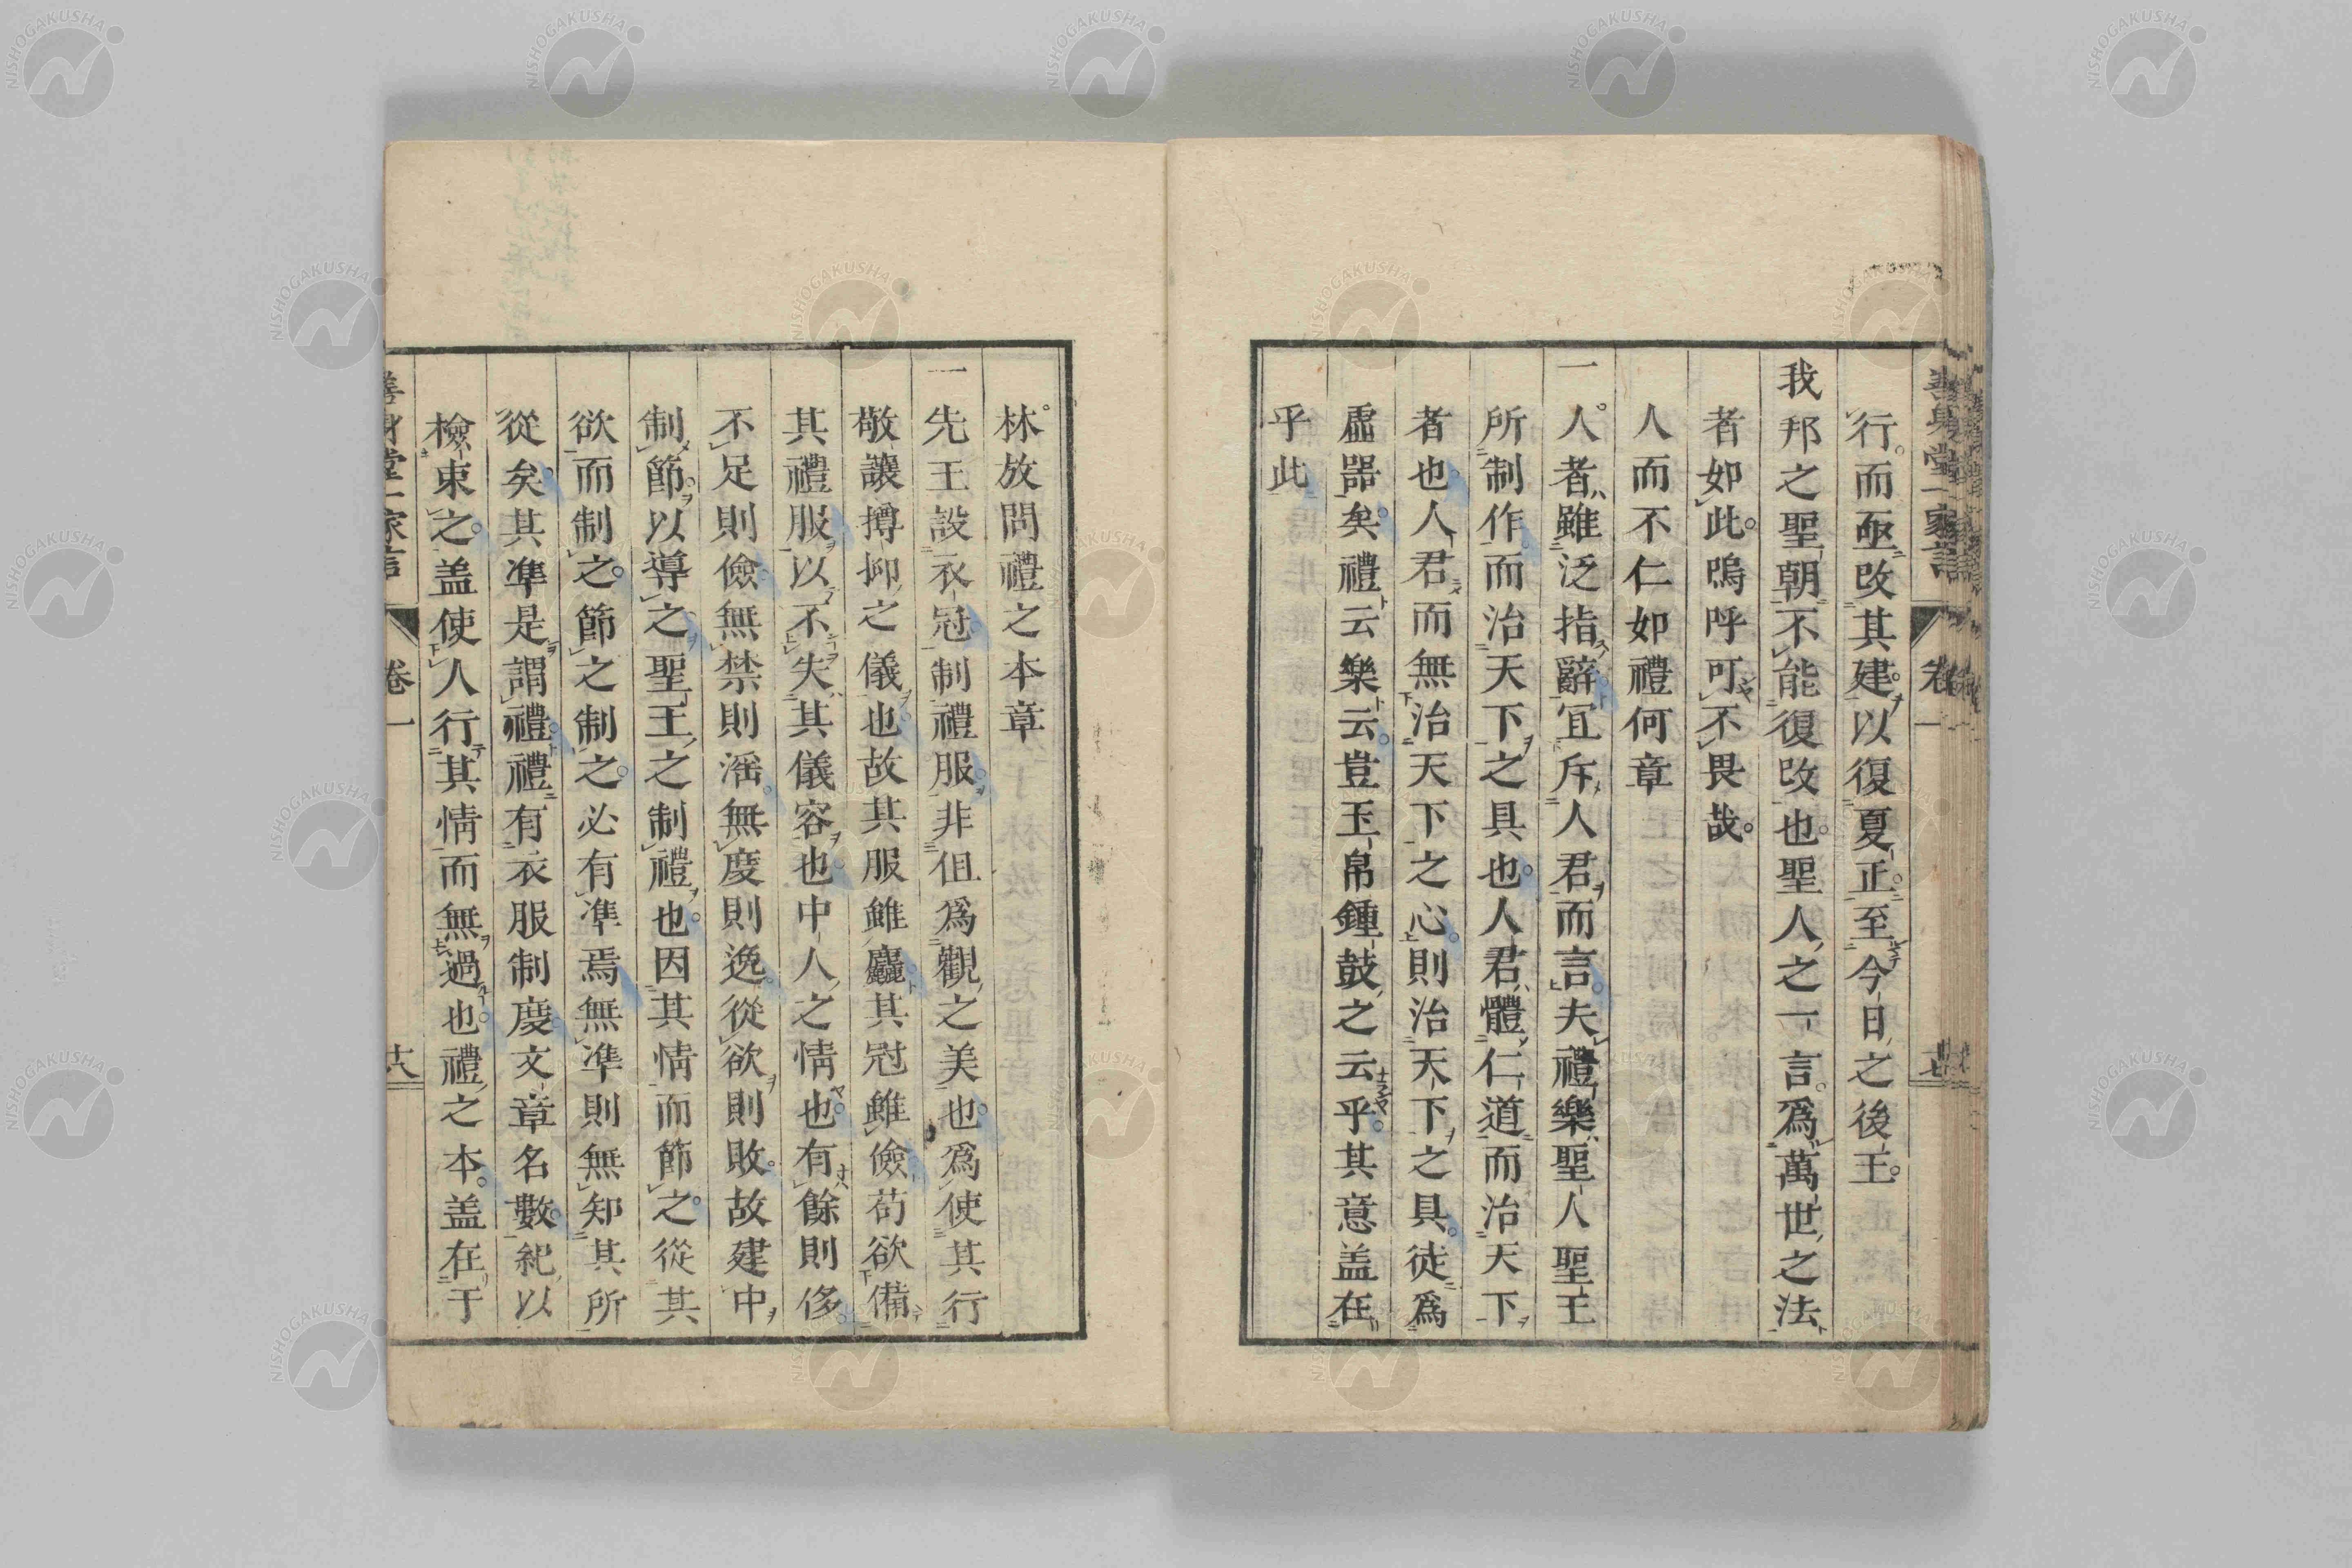 行而亟改其建以復夏正至今日之後王
我邦之聖朝不能復改也聖人之一言爲萬世之法
者如此嗚呼可不畏哉
人而不仁如禮何章
一人者雖泛指辭宜斥人君而言夫禮樂聖人聖王
所制作而治天下之具也人君體仁道而治天下
者也人君而無治天下之心則治天下之具徒爲
虛器矣禮云樂云豈玉帛鍾鼓之云乎其意盖在
乎此
林放問禮之本章
一先王設衣冠制禮服非但爲觀之美也爲使其行
敬讓撙抑之儀也故其服雖麤其冠雖儉苟欲備
其禮服以不失其儀容也中人之情也有餘則侈
不足則儉無禁則滛無度則逸從欲則敗故建中
制節以導之聖王之制禮也因其情而節之從其
欲而制之節之制之必有準焉無準則無知其所
從矣其準是謂禮禮有衣服制度文章名數紀以
檢束之盖使人行其情而無過也禮之本盖在于
善身堂一家言
卷一
NISHOGAKUSHA